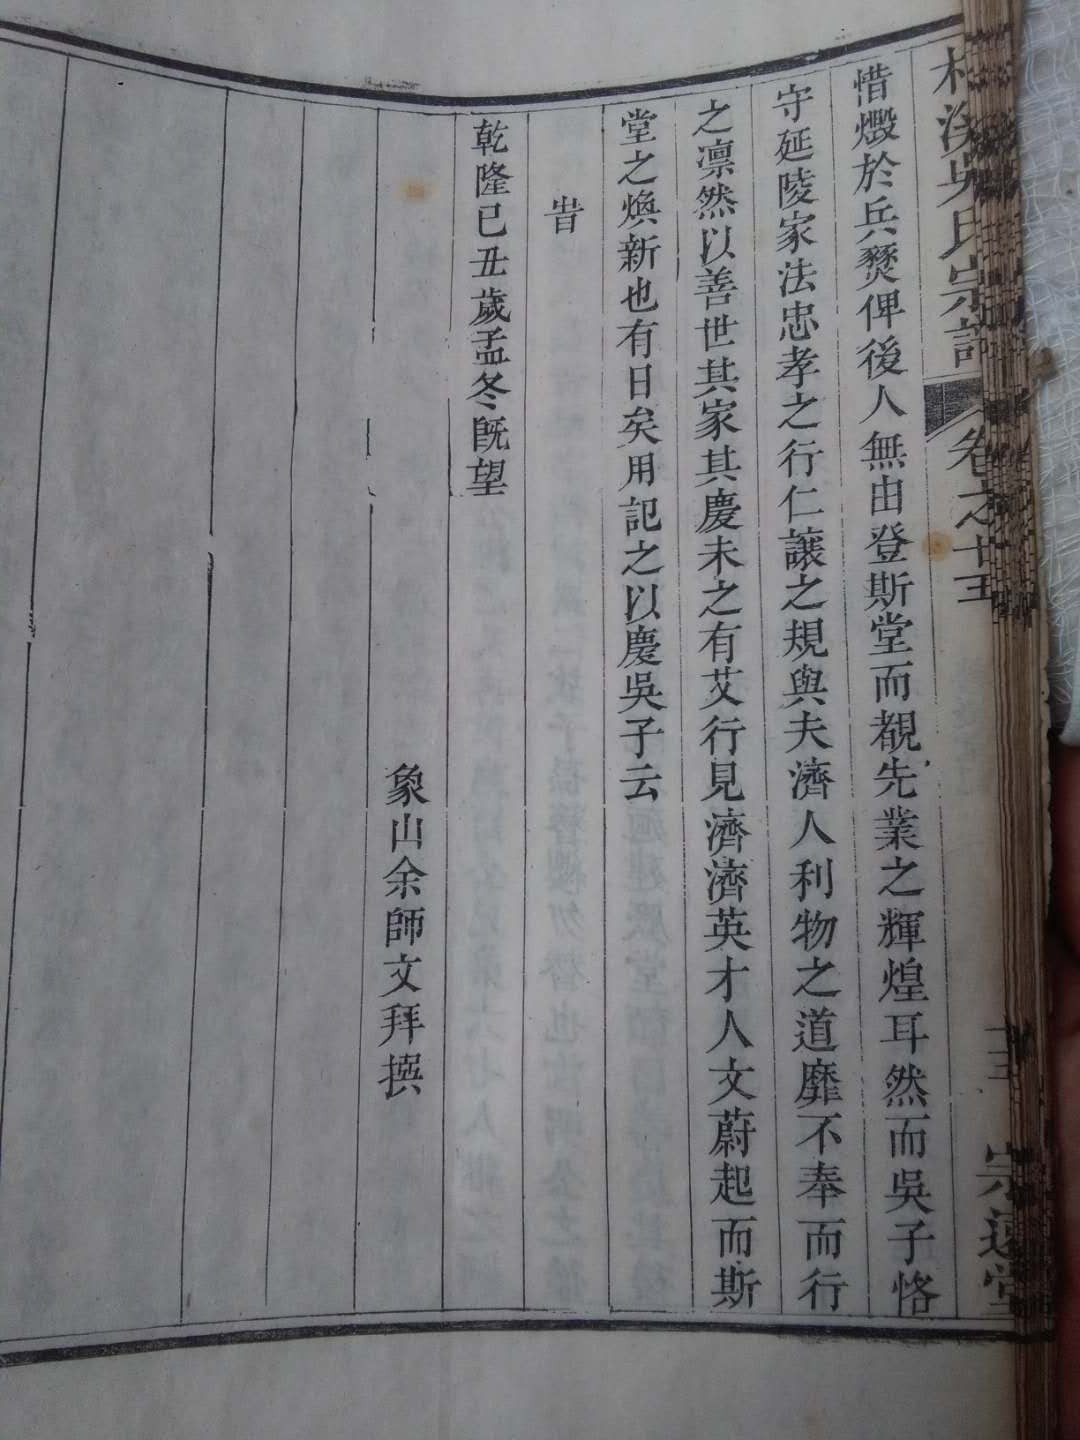 溪吳氏宗譜 卷之十五 崇遠堂
惜燬於兵燹俾後人無由登斯堂而覩先業之輝煌耳然而吳子恪
守延陵家法忠孝之行仁讓之規與夫濟人利物之道靡不奉而行
之凛然以善世其家其慶未之有艾行見濟濟英才人文蔚起而斯
堂之煥新也有日矣用記之以慶吳子云
旹
乾隆已丑歲孟冬旣望
象山余師文拜撰